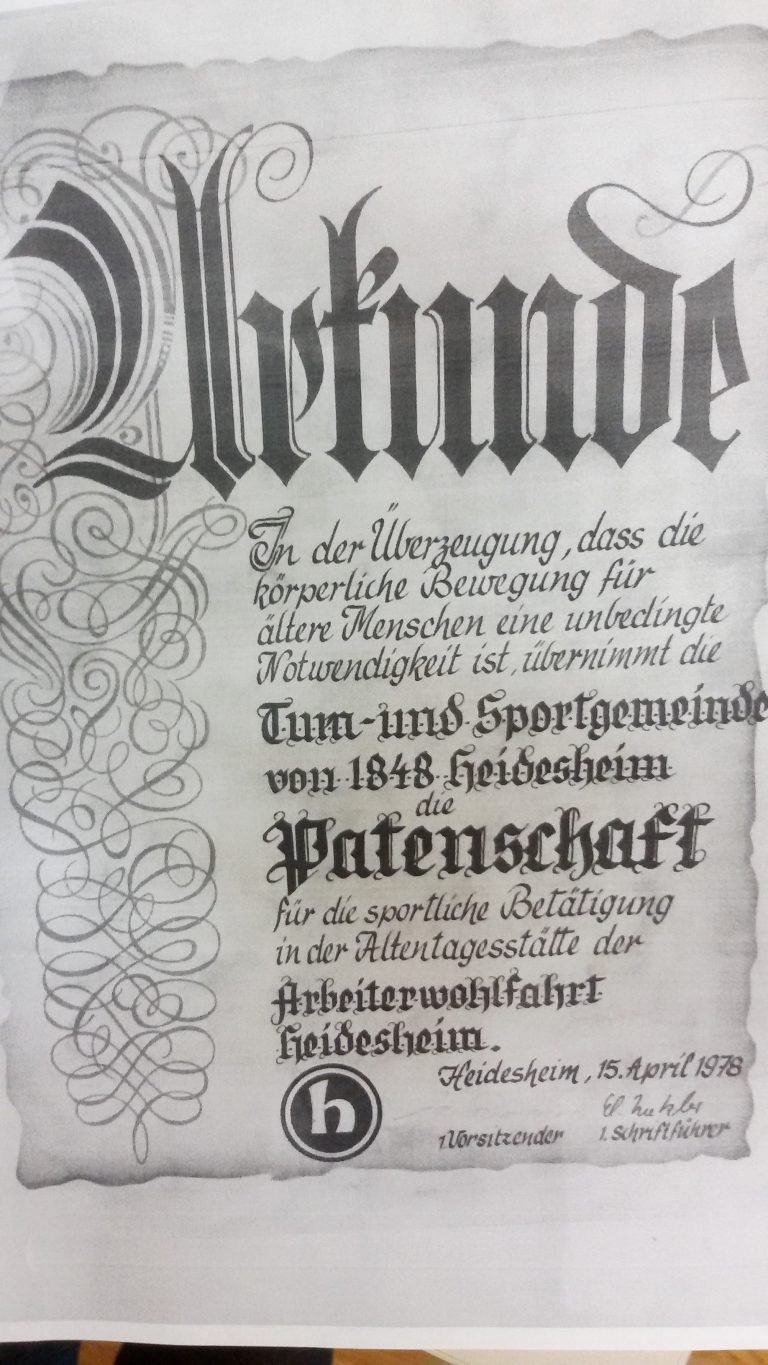 Urkunde
In der Überzeugung, dass die
körperliche Bewegung für
ältere Menschen eine unbedingte
Notwendigkeit ist, übernimmt die
Turn- und Sportgemeinde
von 1848 Heidesheim
die
Patenschaft
für die sportliche Betätigung
in der Altentagesstätte der
Arbeiterwohlfahrt
Heidesheim.
Heidesheim, 15. April 1978
h
1. Vorsitzender 1. Schriftführer